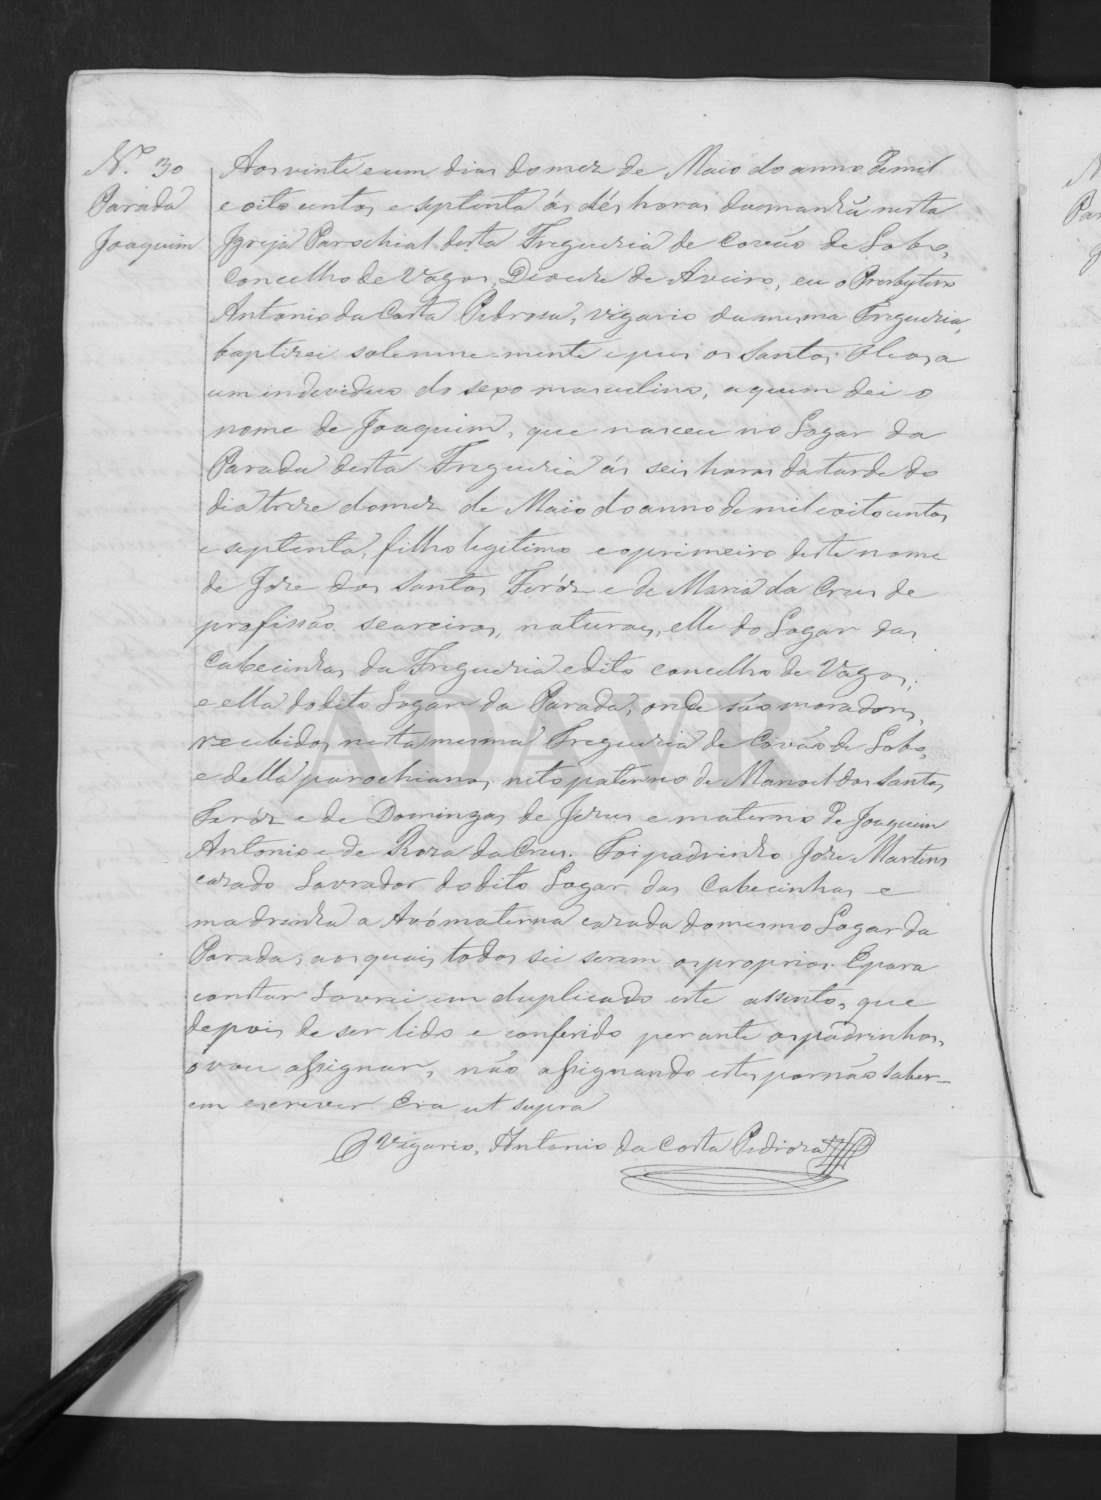 N.º 30
Parada
Joaquim
Aos vinte e um dias do mez de Maio do anno de mil
e oito centos e septenta ás dés horas da manhã nesta
Igreja Parochial desta Freguezia de Covão de Lobo,
concelho de Vagos, Diocese de Aveiro, eu o Presbytero
Antonio da Costa Pedrosa, vigario da mesma Freguezia,
baptizei solemne-mente e puz os Santos Oleos a
um individuo do sexo masculino, a quem dei o
nome de Joaquim, que nasceu no Logar da
Parada desta Freguezia ás seis horas da tarde do
dia treze do mez de Maio do anno de mil e oito centos
e septenta, filho legitimo e o primeiro deste nome
de Joze dos Santos Feróz e de Maria da Crus de
profissão seareiros, naturaes, elle do Logar das
Cabecinhas da Freguezia e dito concelho de Vagos;
e ella do dito Logar da Parada, onde são moradores,
recebidos nesta mesma Freguezia de Covão de Lobo,
e della parochianos, neto paterno de Manoel dos Santos
Feróz e de Domingas de Jezus e materno de Joaquim
Antonio e de Roza da Crus. Foi padrinho Joze Martins
cazado Lavrador do dito Logar das Cabecinhas e
madrinha a Avó materna cazada do mesmo Logar da
Parada, aos quais todos sei serem os proprios. E para
constar Lavrei em duplicado este assento, que
depois de ser lido e conferido perante os padrinhos,
o vou assignar, não assignando estes por não saber-
em escrever Era ut supra
O Vigario, Antonio da Costa Pedroza
ADAVR